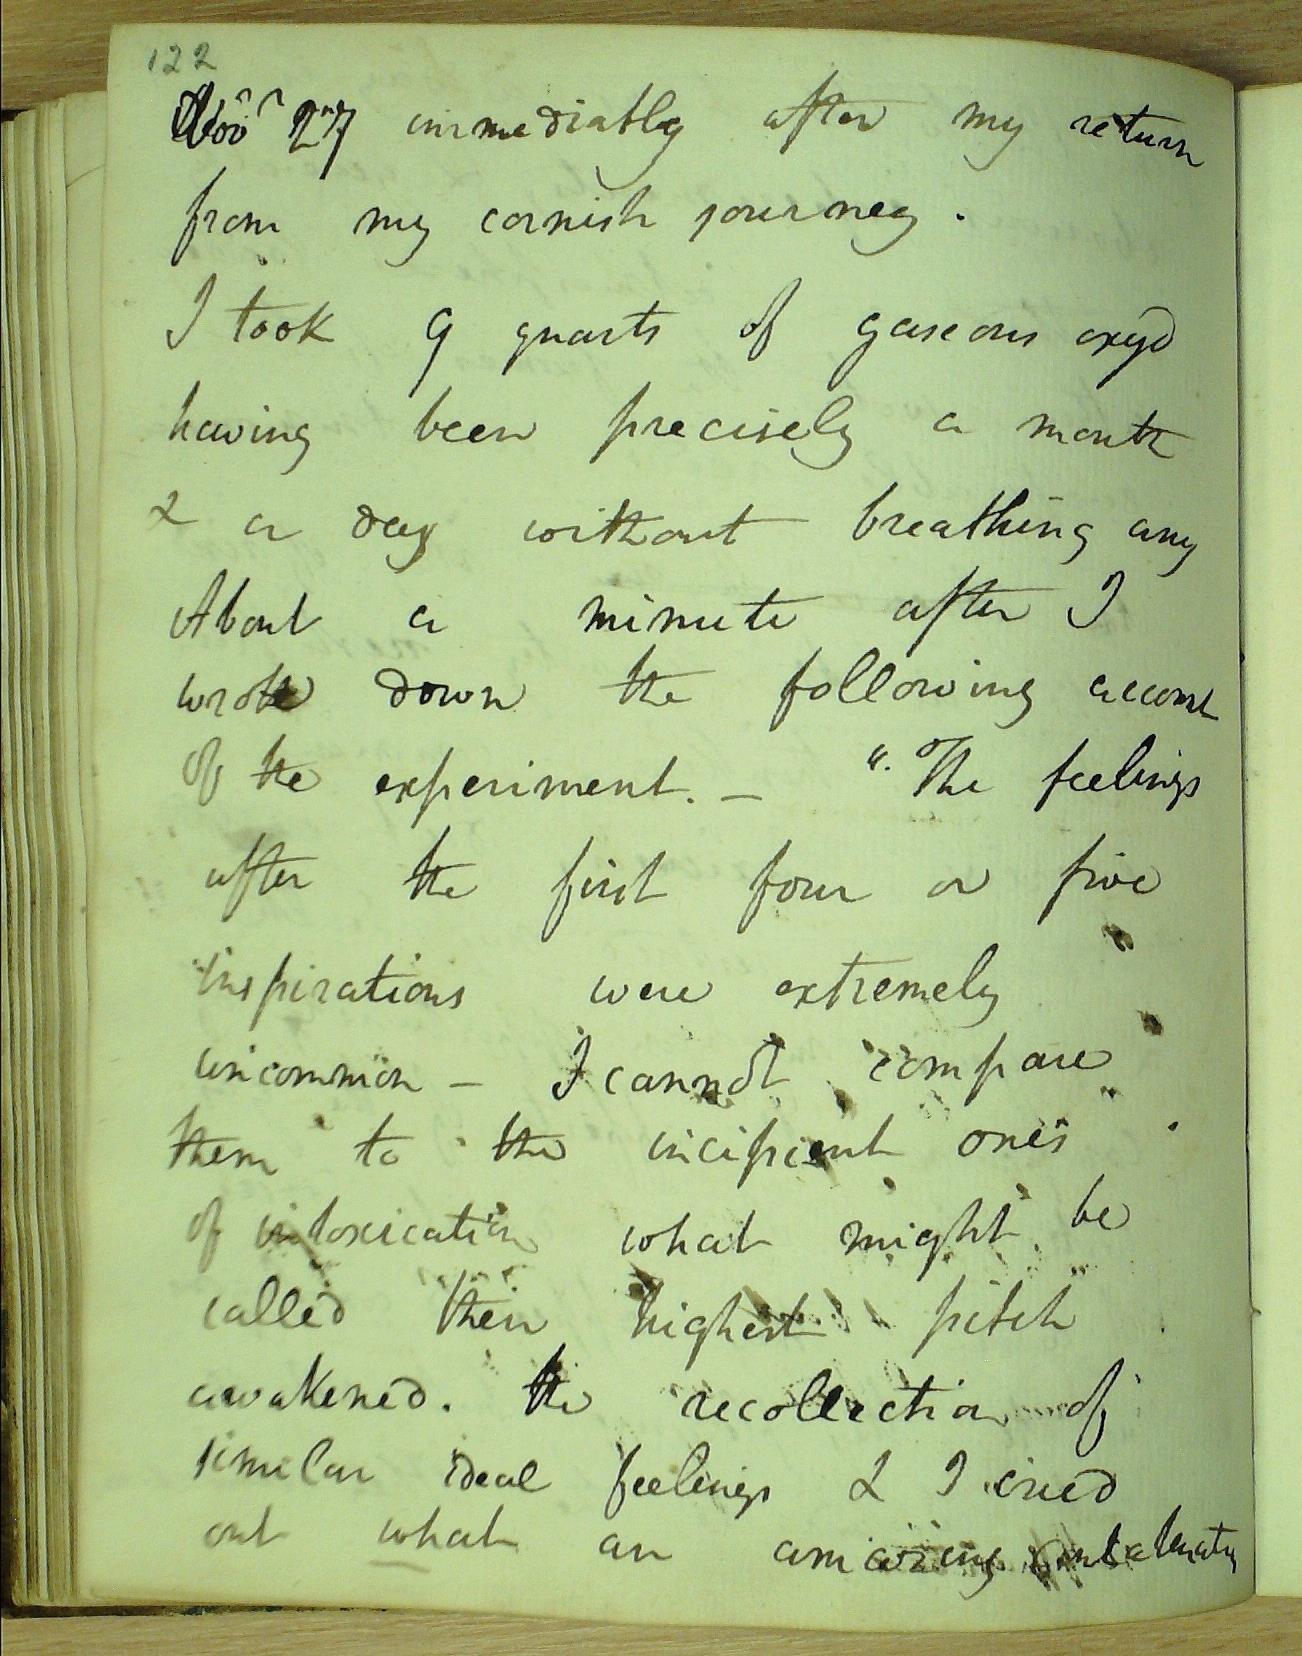 122
Nov 27 immediatly after my return
from my cornish journey.
I took 9 quarts of gaseous oxyd
having been precisely a month
& a day without breathing any
About a minute after I
wrote down the following account
of the experiment. — ". The feelings
after the first four or five
inspirations were extremely
uncommon — I cannot compare
them to the incipient ones
of intoxication what might be
called their highest pitch
awakened. the recollection of
similar ideal feelings & I cried
out what an amazing